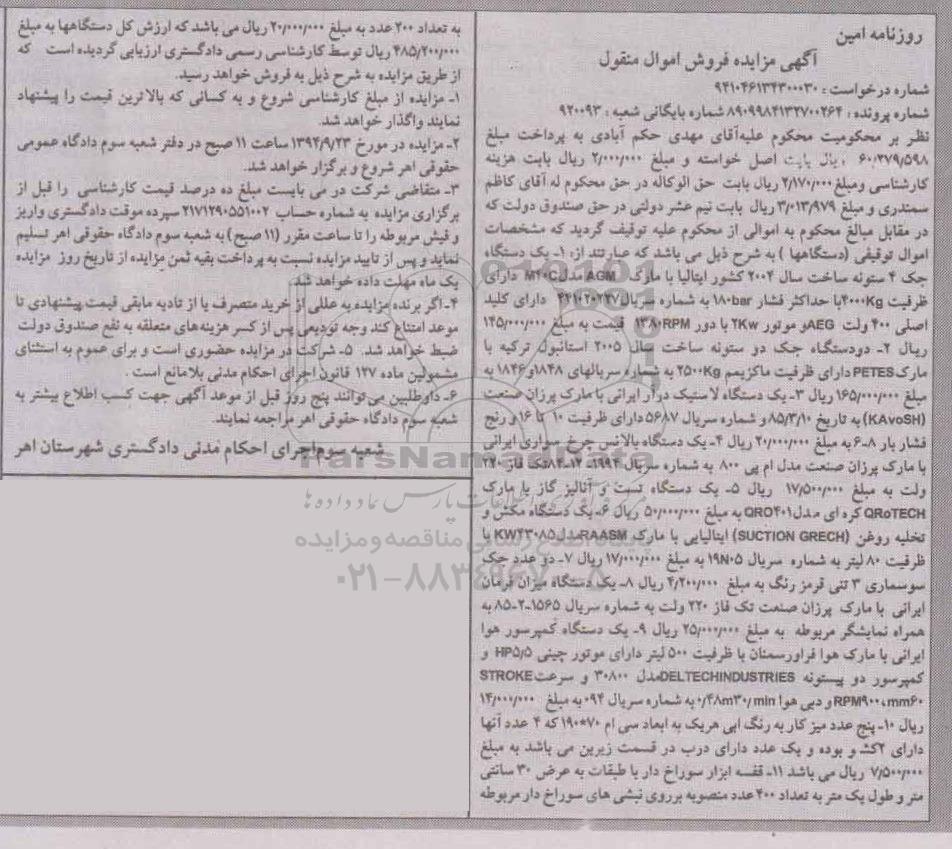 روزنامه امین
آگهی مزایده فروش اموال منقول
شماره درخواست : ۹۴۱۰۴۶۱۳۴۳۰۰۰۳۰
شماره پرونده : ۸۹۰۹۹۸۴۱۳۲۷۰۰۲۶۴ شماره بایگانی شعبه : ۹۲۰۰۹۳
نظر بر محکومیت محکوم علیه آقای مهدی حکم آبادی به پرداخت مبلغ
۶۰/۳۷۹/۵۹۸ ریال بابت اصل خواسته و مبلغ ۲/۰۰۰/۰۰۰ ریال بابت هزینه
کارشناسی ومبلغ ۲/۱۷۰/۰۰۰ ریال بابت حق الوکاله در حق محکوم له آقای کاظم
سمندری و مبلغ ۳/۰۱۳/۹۷۹ ریال بابت نیم عشر دولتی در حق صندوق دولت که
در مقابل مبالغ محکوم به اموالی از محکوم علیه توقیف گردید که مشخصات
اموال توقیفی (دستگاهها ) به شرح ذیل می باشد که عبارتند از: ۱- یک دستگاه
جک ۴ ستونه ساخت سال ۲۰۰۴ کشور ایتالیا با مارک AGM مدل M۴۰C دارای
ظرفیت ۴۰۰۰Kg با حداکثر فشار ۱۸۰bar به شماره سریال ۴۴۱۰۲۰۲۲۷ دارای کلید
اصلی ۴۰۰ ولت AEG و موتور ۲Kw با دور ۱۳۸۰RPM قیمت به مبلغ ۱۴۵/۰۰۰/۰۰۰
ریال ۲- دودستگاه جک دو ستونه ساخت سال ۲۰۰۵ استانبول ترکیه با
مارک PETES دارای ظرفیت ماکزیمم ۲۵۰۰Kg به شماره سریالهای ۱۸۴۸و۱۸۴۶ به
مبلغ ۱۶۵/۰۰۰/۰۰۰ ریال ۳- یک دستگاه لاستیک درآر ایرانی با مارک پرزان صنعت
(KAvoSH) به تاریخ ۸۵/۳/۱۰ و شماره سریال ۵۶۸۷ دارای ظرفیت ۱۰ تا ۱۶ و رنج
فشار بار ۸-۶ به مبلغ ۲۰/۰۰۰/۰۰۰ ریال ۴- یک دستگاه بالانس چرخ سواری ایرانی
با مارک پرزان صنعت مدل ام پی ۸۰۰ به شماره سریال ۱۹۹۴-۱۲-۸۴ تک فاز ۲۲۰
ولت به مبلغ ۱۷/۵۰۰/۰۰۰ ریال ۵- یک دستگاه تست و آنالیز گاز با مارک
QRoTECH کره ای مدل QRO۴۰۱ به مبلغ ۵۰/۰۰۰/۰۰۰ ریال ۶- یک دستگاه مکش و
تخلیه روغن (SUCTION GRECH) ایتالیایی با مارک RAASM مدل KW۴۳۰۸۵ با
ظرفیت ۸۰ لیتر به شماره سریال ۱۹N۰۵ به مبلغ ۱۷/۰۰۰/۰۰۰ ریال ۷- دو عدد جک
سوسماری ۳ تنی قرمز رنگ به مبلغ ۴/۲۰۰/۰۰۰ ریال ۸- یک دستگاه میزان فرمان
ایرانی با مارک پرزان صنعت تک فاز ۲۲۰ ولت به شماره سریال ۱۵۶۵-۲-۸۵ به
همراه نمایشگر مربوطه به مبلغ ۲۵/۰۰۰/۰۰۰ ریال ۹- یک دستگاه کمپرسور هوا
ایرانی با مارک هوا فراورسمنان با ظرفیت ۵۰۰ لیتر دارای موتور چینی HP۵/۵ و
کمپرسور دو پیستونه DELTECHINDUSTRIES مدل ۳۰۸۰۰ و سرعت STROKE
RPM۹۰۰،mm۶۰ و دبی هوا ۰/۴۸m۳۰/min به شماره سریال ۰۹۴ به مبلغ ۱۴/۰۰۰/۰۰۰
ریال ۱۰- پنج عدد میز کار به رنگ ابی هریک به ابعاد سی ام ۷۰*۱۹۰ که ۴ عدد آنها
دارای ۲کشو بوده و یک عدد دارای درب در قسمت زیرین می باشد به مبلغ
۷/۵۰۰/۰۰۰ ریال می باشد ۱۱- قفسه ابزار سوراخ دار با طبقات به عرض ۳۰ سانتی
متر و طول یک متر به تعداد ۴۰۰ عدد منصوبه برروی نبشی های سوراخ دار مربوطه
به تعداد ۲۰۰ عدد به مبلغ ۲۰/۰۰۰/۰۰۰ ریال می باشد که ارزش کل دستگاهها به مبلغ
۴۸۵/۲۰۰/۰۰۰ ریال توسط کارشناسی رسمی دادگستری ارزیابی گردیده است که
از طریق مزایده به شرح ذیل به فروش خواهد رسید.
۱- مزایده از مبلغ کارشناسی شروع و به کسانی که بالاترین قیمت را پیشنهاد
نمایند واگذار خواهد شد.
۲- مزایده در مورخ ۱۳۹۴/۹/۲۳ ساعت ۱۱ صبح در دفتر شعبه سوم دادگاه عمومی
حقوقی اهر شروع و برگزار خواهد شد.
۳- متقاضی شرکت در می بایست مبلغ ده درصد قیمت کارشناسی را قبل از
برگزاری مزایده به شماره حساب ۲۱۷۱۲۹۰۵۵۱۰۰۲ سپرده موقت دادگستری واریز
و فیش مربوطه را تا ساعت مقرر (۱۱ صبح) به شعبه سوم دادگاه حقوقی اهر تسلیم
نماید و پس از تایید مزایده نسبت به پرداخت بقیه ثمن مزایده از تاریخ روز مزایده
یک ماه مهلت داده خواهد شد.
۴- اگر برنده مزایده به عللی از خرید متصرف یا از تادیه مابقی قیمت پیشنهادی تا
موعد امتناع کند وجه تودیعی پس از کسر هزینه‌های متعلقه به نفع صندوق دولت
ضبط خواهد شد. ۵- شرکت در مزایده حضوری است و برای عموم به استثنای
مشمولین ماده ۱۲۷ قانون اجرای احکام مدنی بلامانع است .
۶- داوطلبین می‌توانند پنج روز قبل از موعد آگهی جهت کسب اطلاع بیشتر به
شعبه سوم دادگاه حقوقی اهر مراجعه نمایند.
شعبه سوم اجرای احکام مدنی دادگستری شهرستان اهر
ParsNamadData